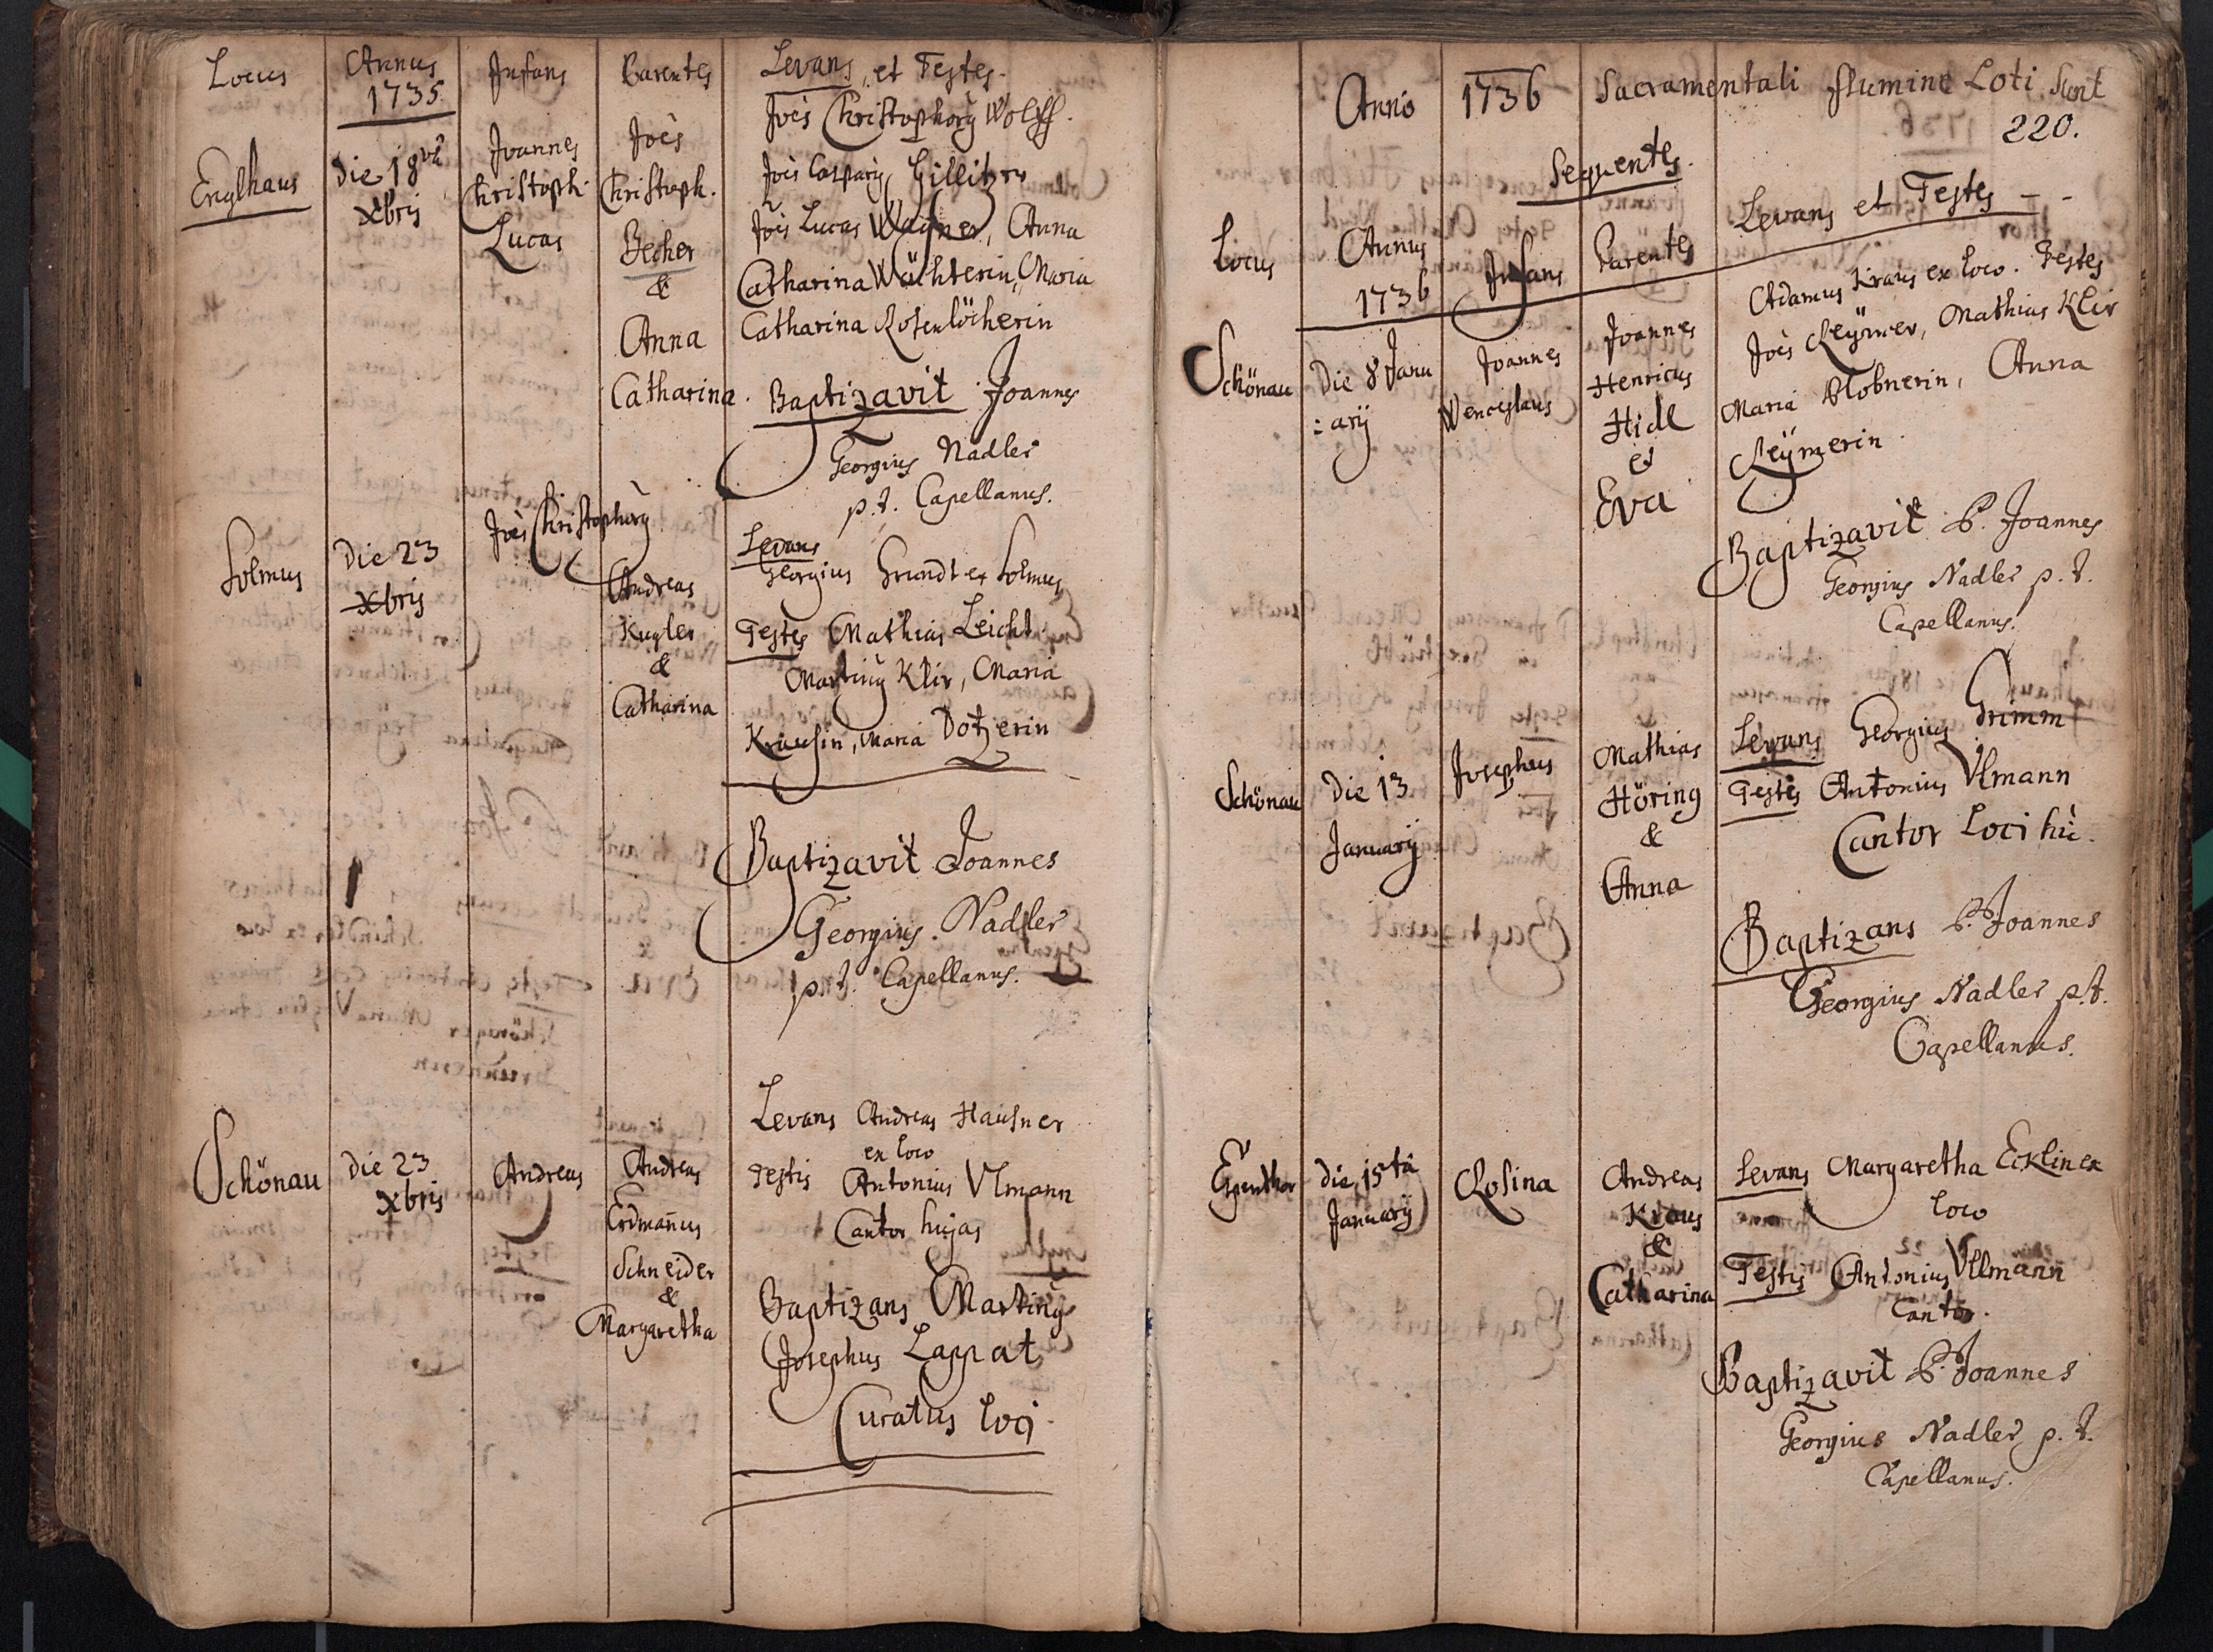 Locus Annus Infans Parentes Levans, et Testes.
1735
Englhaus Die 18vâ Joannes Joês Joês Christophorg Wolff.
Xbris Christoph. Christoph. Joês Casparg Gillitzer
Lucas Becher Joês Lucas Wagner, Anna
& Catharina Wächterin, Maria
Anna Catharina Rosenlöcherin
Catharina. Baptizavit Joannes
Georgius Nadler
p.t. Capellanus.
Solmus Die 23 Joês Christophorg Levans
Xbris Andreas Georgius Grundt ex Solmus
Kugler Testes Mathias Leicht
& Marting Klir, Maria
Catharina Krausin, Maria Dotzerin
Baptizavit Joannes
Georgius Nadler
p.t. Capellanus.
Levans Andreas Hausner
ex loco
Schönau Die 23 Andreas Andreas Testis Antonius Vlmann
Xbris Erdmañus Cantor hujas
Schneider
& Baptizans Marting
Margaretha Josephus Lappat
Curatus loci
Anno 1736 Sacramentali flumine Loti sunt
220.
Sequentes.
Locus Annus Infans Parentes Levans et Testes - -
1736
Schönau Die 8 Janu Joannes Joannes Adamus Kraus ex loco. Testes
: arij Wenceslaus Henricus Joês Reÿmer, Mathias Klir
Hidl Maria Plobnerin, Anna
et Reÿmerin
Eva
Baptizavit P. Joannes
Georgius Nadler p.t.
Capellanus.
Schönau Die 13 Josephus Mathias Levans Georgius Grimm
Januarij Höring Testis Antonius Vlmann
& Cantor Loci hũ.
Anna
Baptizans P. Joannes
Georgius Nadler p.t.
Capellanus.
Espenthor die 15tâ Rosina Andreas Levans Margaretha Ecklin ex
Januarij Kraus loco
& Testis Antonius Vllmann
Catharina Cantor.
Baptizavit P. Joannes
Georgius Nadler p.t.
Capellanus.